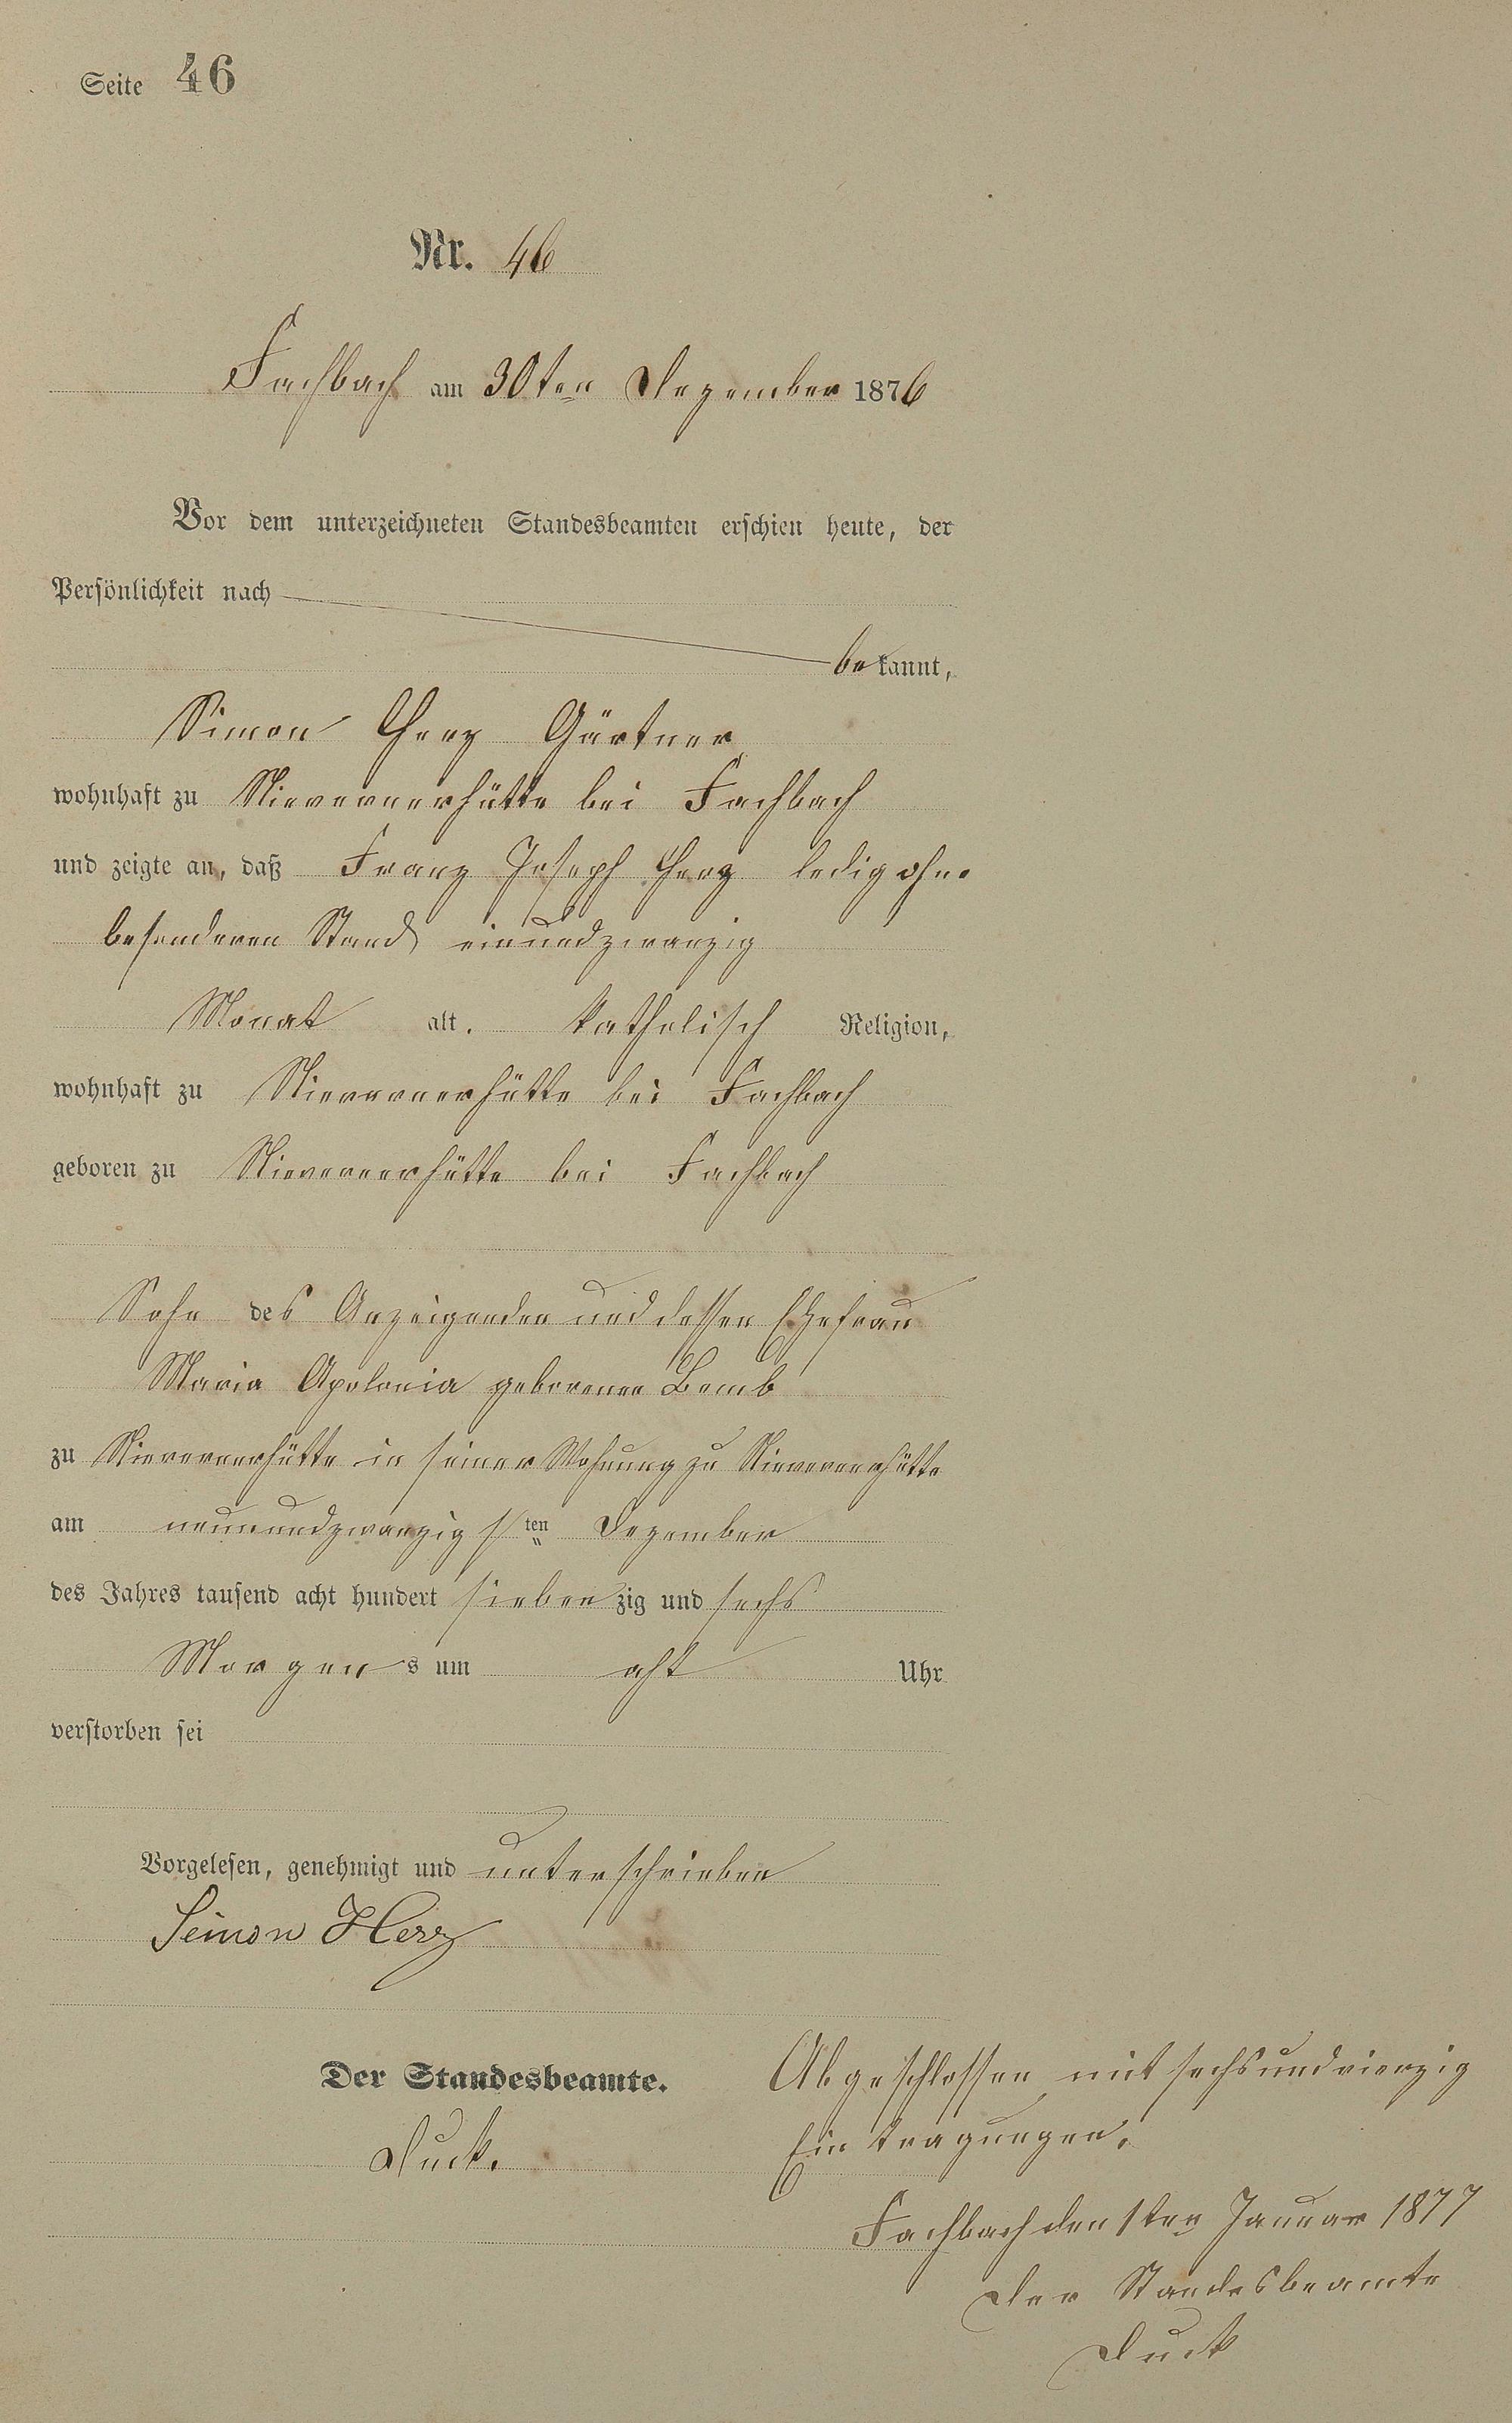 Seite 46
Nr. 46
Fachbach am 30ten Dezember 1876
Vor dem unterzeichneten Standesbeamten erschien heute, der
Persönlichkeit nach
bekannt,
Simon Herz Gärtner
wohnhaft zu Nievernerhütte bei Fachbach
und zeigte an, daß Franz Joseph Herz ledig ohne
besonderen Stand einundzwanzig
Monat alt. katholisch Religion,
wohnhaft zu Nievernerhütte bei Fachbach
geboren zu Nievernerhütte bei Fachbach
Sohn des Anzeigenden und dessen Ehefrau
Maria Apolonia geborenen Bemb
zu Nievernerhütte in seiner Wohnung zu Nievernerhütte
am neunundzwanzigsten Dezember
des Jahres tausend acht hundert siebenzig und sechs
Morgens um acht Uhr
verstorben sei
Vorgelesen, genehmigt und unterschrieben
Simon Herz
Der Standesbeamte.
Duck.
Abgeschlossen mit sechsundvierzig
Eintragungen.
Fachbach den 1ten Januar 1877
Der Standesbeamte
Duck